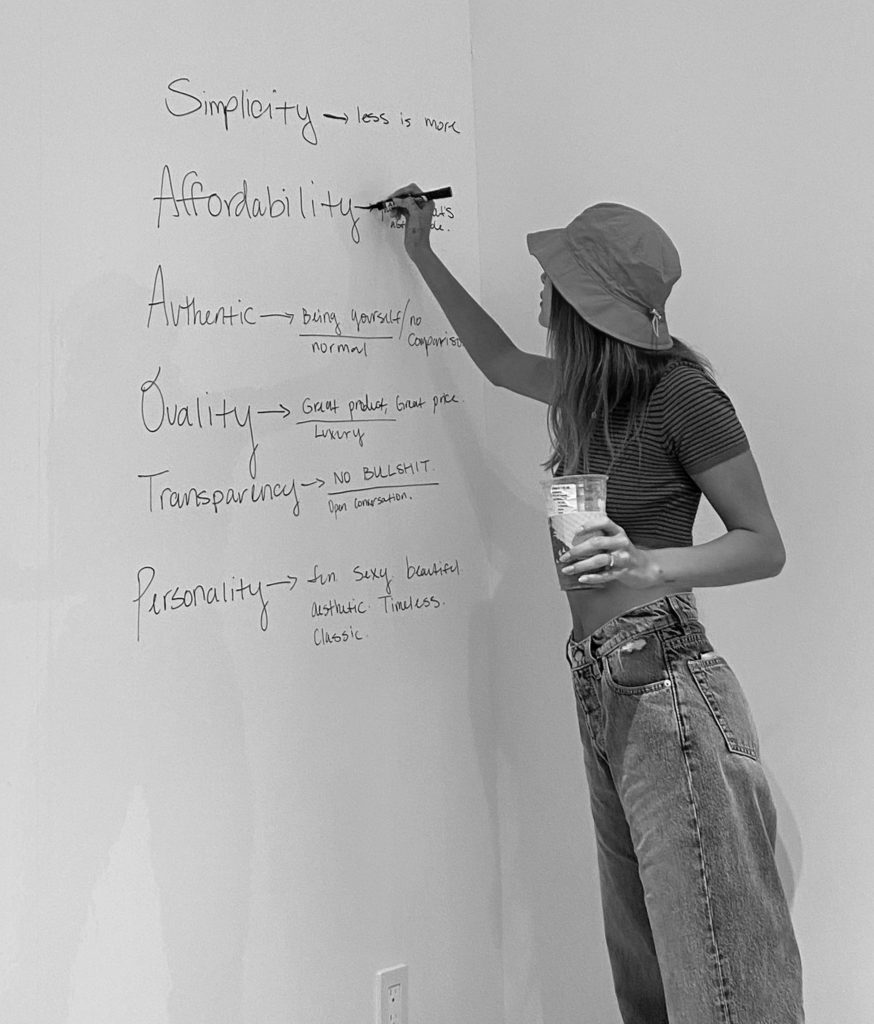 Simplicity → less is more
Affordability →
Authentic → Being yourself / no
normal
Quality → Great product, Great price.
Luxury
Transparency → NO BULLSHIT.
Open conversation.
Personality → fun sexy beautiful.
aesthetic. Timeless.
Classic.